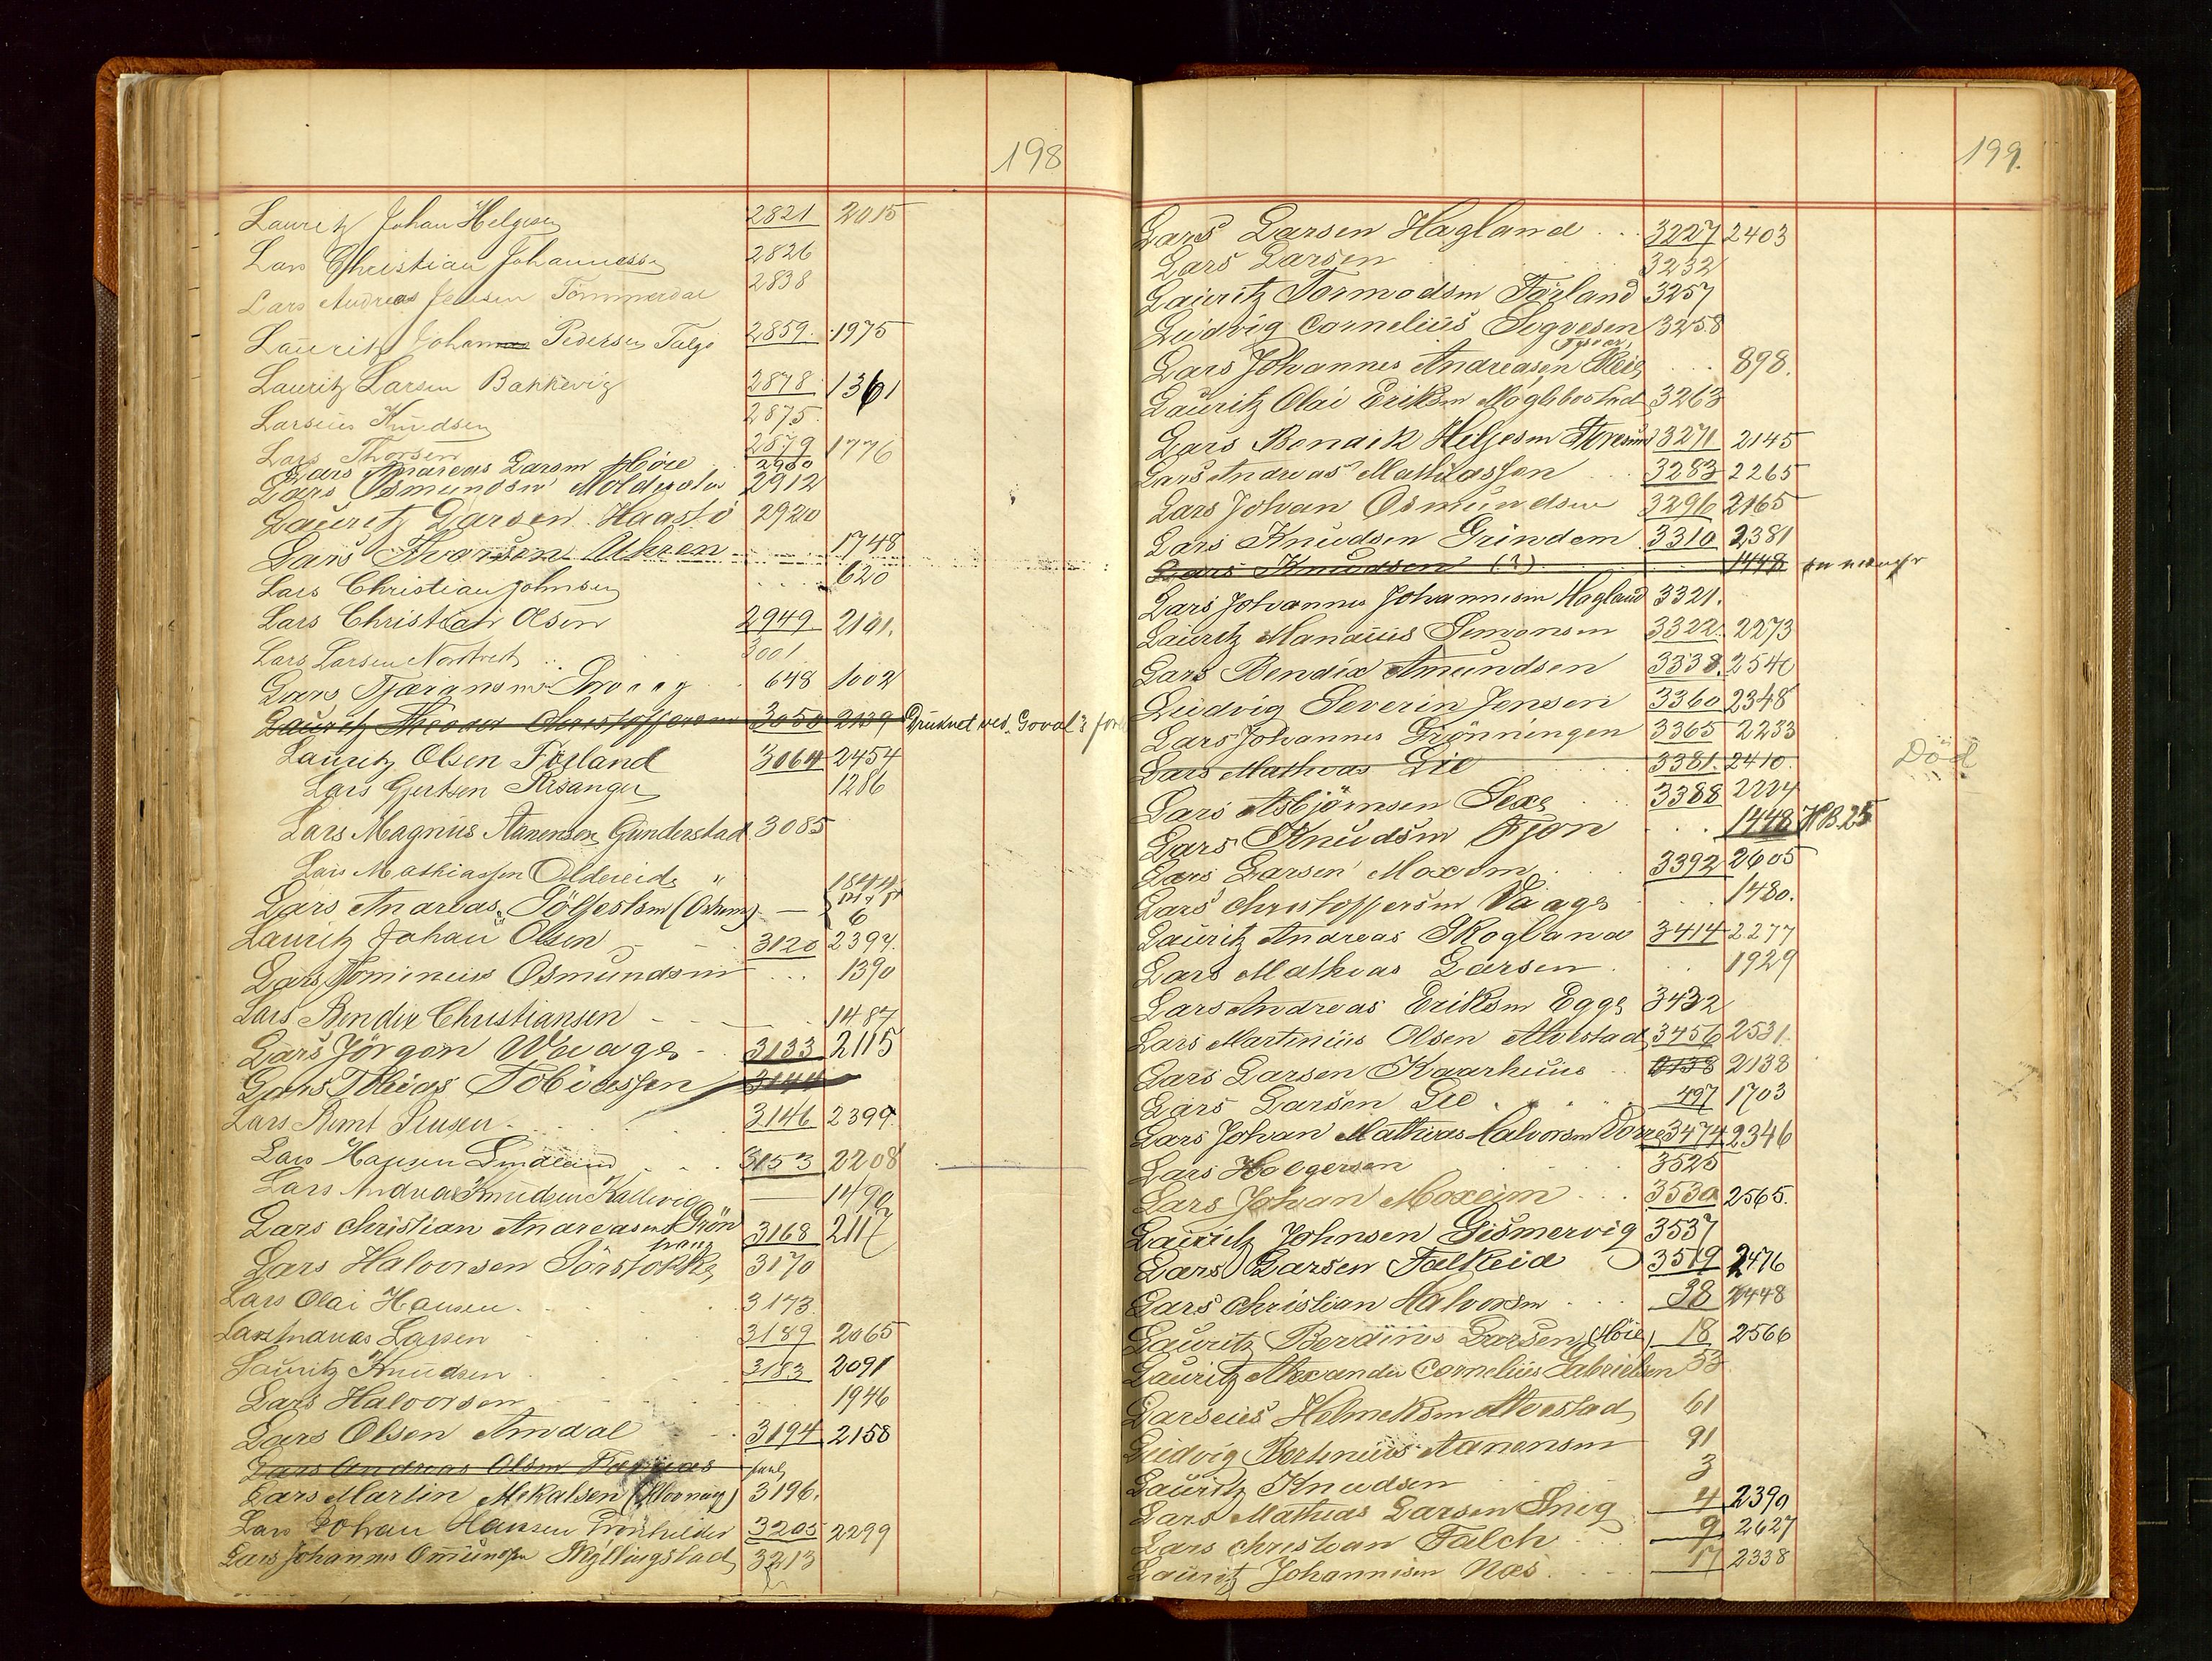 198
Lauritz Johan Helgesen 2821 2015
Lars Christian Johannessen 2826
Lars Andreas Jensen Tömmerdal 2838
Lauritz Johannes Pedersen Talgö 2859 1975
Lauritz Larsen Bakkevig 2878 1361
Larseus Knudsen 2875
Lars Thorsen 2879 1776
Lars Andreas Larsen Höie 2900
Lars Osmundsen 2912
Lauritz Larsen Haastö 2920
Lars Iversen 1748
Lars Christian Johnsen 620
Lars Christian Olsen 2949 2101.
Lars Larsen Nordtvedt 3001
Lars 648 1002
Lauritz 3050 2139 Druknet ved
Lauritz Olsen Förland 3064 2454
Lars Gjertsen Risanger 1286
Lars Magnus Aanensen Gunderstad 3085
Lars Mathiassen Oldereide " 1844
Lars Andreas (Oskem) — 6
Lauritz Johan Olsen 3120 2397
Lars Osmundsen 1390
Lars Bendix Christiansen 1487
Lars Jörgen Waage 3133 2115
Lars Tobias Tobiassen 3144
Lars Bernt Jensen 3146 2399
Lars Hansen Lindland 3153 2208
Lars Andreas Knudsen Kallevig — 1490
Lars Christian Andreasen Grön 3168 2117
Lars Halvorsen Sörstokke 3170
Lars Olai Hansen 3173
Lars Andreas Larsen 3189 2065
Lauritz Knudsen 3183 2091
Lars Halvorsen 1946
Lars Olsen Amdal 3194 2158
Lars Andreas Olsen
Lars Martin Mikalsen 3196.
Lars Johan Hansen 3205 2299
Lars Johannes Omundsen Kyllingstad 3213
199.
Lars Larsen Hagland 3227 2403
Lars Larsen 3232
Lauritz Tormodsen Förland 3257
Ludvig Cornelius Sogvesen 3258
Tysvær,
Lars Johannes Andreasen 898.
Lauritz Olai Eriksen Möglebostad 3263
Lars Bendik Helgesen 3271 2145
Lars Andreas Mathiassen 3283 2265
Lars Johan Osmundsen 3296 2165
Lars Knudsen Grindem 3310 2381
Lars Knudsen (?) 1448
Lars Johannes Johannesen Hagland 3321.
Lauritz Mandius Simonsen 3322 2273
Lars Bendix Amundsen 3338 2540
Ludvig Severin Jensen 3360 2348
Lars Johannes Grönningen 3365 2233
Lars Mathias Lie 3381 2410 Död
Lars Asbjörnsen Sexe 3388 2224
Lars Knudsen Fjon 1448 HB.25
Lars Larsen Moxeim 3392 2605
Lars Christoffersen Vaage 1480.
Lauritz Andreas Skogland 3414 2277
Lars Mathias Larsen 1929
Lars Andreas Eriksen Egge 3432
Lars Martinius Olsen Alvestad 3456 2531
Lars Larsen Kaarhuus 2138 2138
Lars Larsen Lie 497 1703
Lars Johan Mathias Halvorsen 3474 2346
Lars Holgersen 3525
Lars Johan Moxeim 3530 2565.
Lauritz Johnsen Gismervig 3537
Lars Larsen Falkeid 3519 2476
Lars Christian Halvorsen 38 2448
Lauritz Berdines Larsen (Höie) 18 2566
Lauritz Alexander Cornelius Gabrielsen 53
Larseus Helmeksen Alvestad 61
Ludvig Bertinius Aanensen 91
Lauritz Knudsen 3
Lars Mathias Larsen Snig 4 2390
Lars Christian Falch 9 2627
Lauritz Johannesen Næs 17 2338